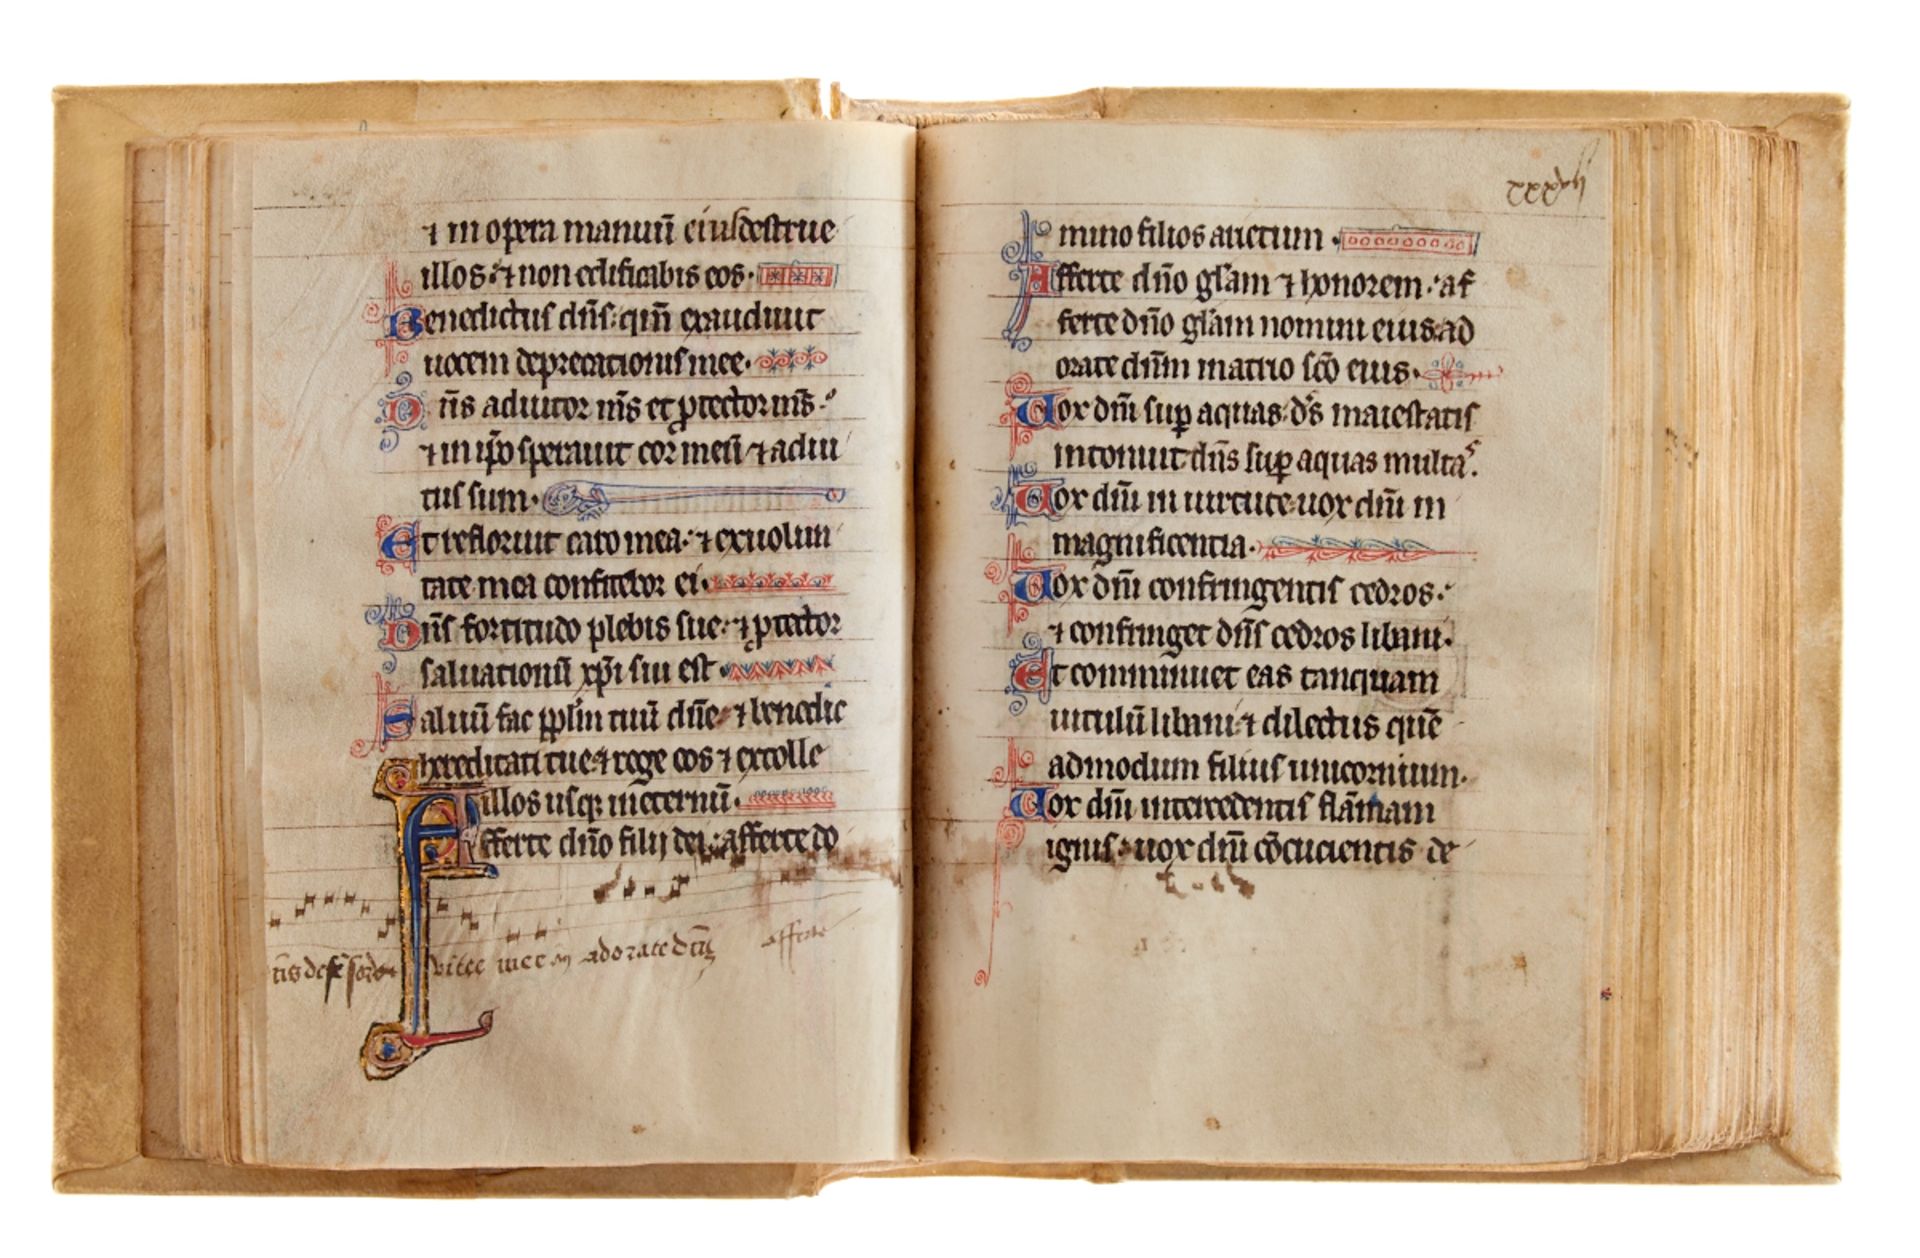 ⁊ in opera manuū eius destrue
illos: ⁊ non edificabis eos.
Benedictus dn̄s: qm̄ exaudiuit
uocem deprecationis mee.
Dn̄s adiutor m̄s et ꝓtector m̄s:
⁊ in ip̄o sperauit cor meū ⁊ adiu
tus sum.
Et refloruit caro mea: ⁊ ex uolun
tate mea confitebor ei.
Dn̄s fortitudo plebis sue: ⁊ ꝓtector
saluationū xp̄i sui est.
Saluū fac pplm tuū dn̄e: ⁊ benedic
hereditati tue: ⁊ rege eos ⁊ extolle
illos usq; in eternū.
Afferte dn̄o filij dei: afferte do
adorate dūm afferte
xxxvij
mino filios arietum.
Afferte dn̄o gl̄am ⁊ honorem: af
ferte dn̄o gl̄am nomini eius: ad
orate dn̄m in atrio sc̄o eius.
Uox dn̄i sup aquas: ds̄ maiestatis
intonuit: dn̄s sup aquas multas.
Uox dn̄i in uirtute: uox dn̄i in
magnificentia.
Uox dn̄i confringentis cedros:
⁊ confringet dn̄s cedros libani.
Et comminuet eas tanquam
uitulū libani: ⁊ dilectus quē
admodum filius unicornium.
Uox dn̄i intercedentis flām̄am
ignis: uox dn̄i cōcucientis de